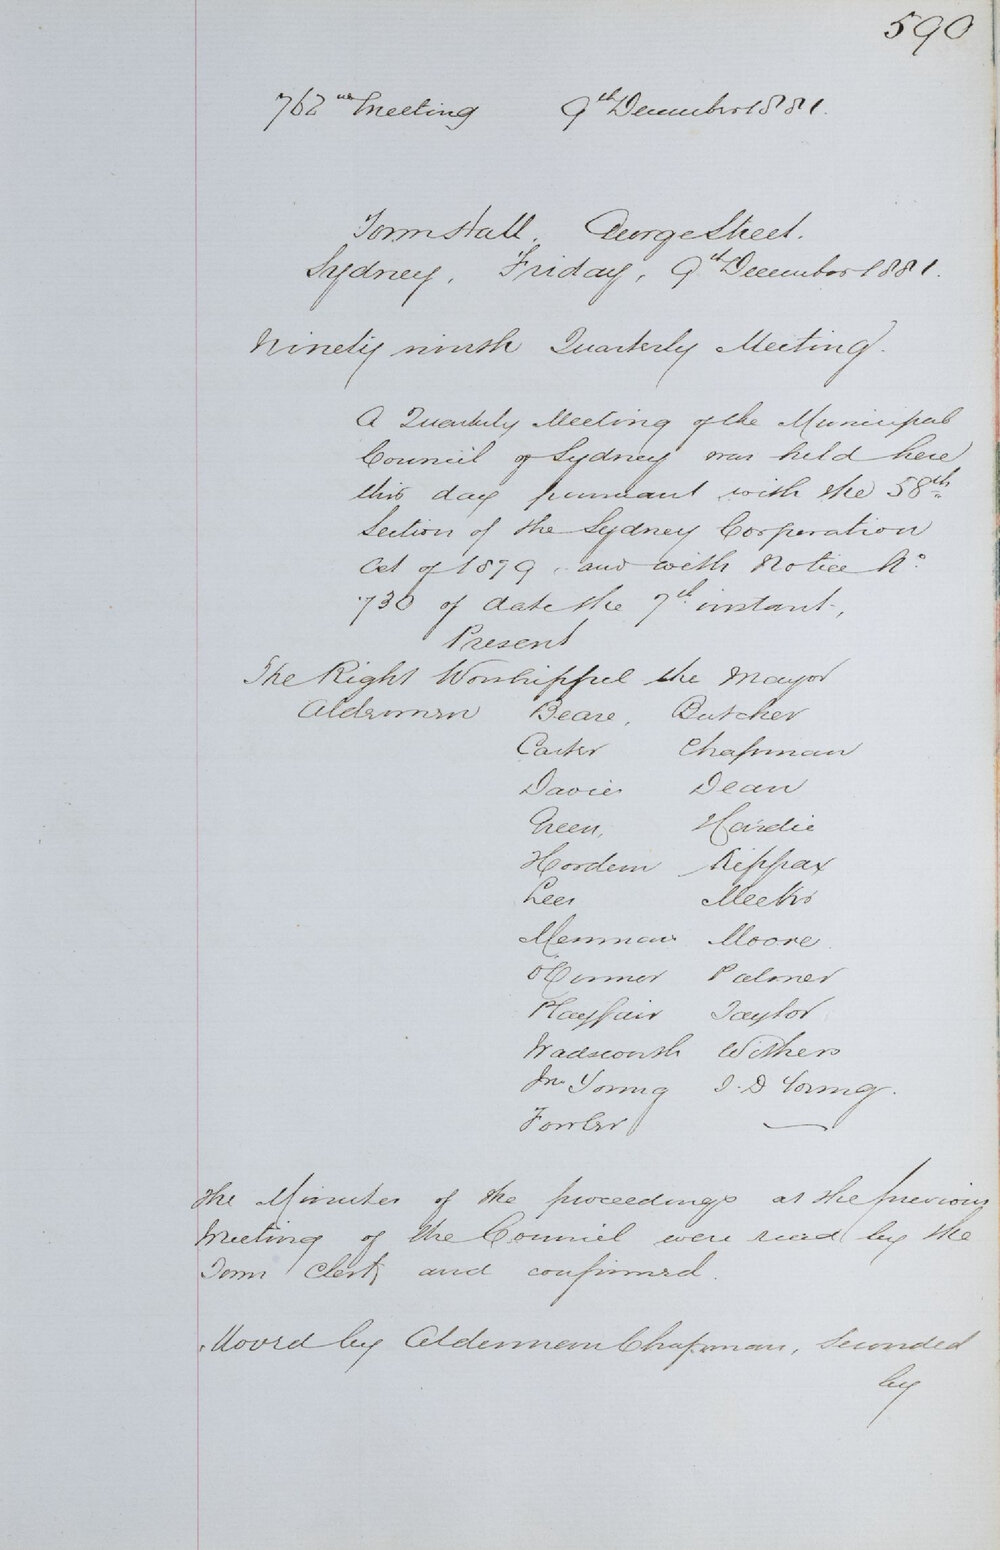 590
762nd Meeting 9th December 1881.
Town Hall, George Street.
Sydney, Friday, 9th December 1881.
Ninety ninth Quarterly Meeting.
A Quarterly Meeting of the Municipal
Council of Sydney was held here
this day pursuant with the 58th
Section of the Sydney Corporation
Act of 1879, and with Notice No
730 of date the 7th instant,
Present
The Right Worshipful the Mayor
Aldermen Beare, Butcher
Carter Chapman
Davies Dean
Green, Hardie
Hordern Kippax
Lees Meeks
Merriman Moore
O'Connor Palmer
Playfair Taylor
Wadsworth Withers
Jno Young J. D Young.
Fowler —
The Minutes of the proceedings at the previous
Meeting of the Council were read by the
Town Clerk and confirmed.
Moved by Alderman Chapman, Seconded
by